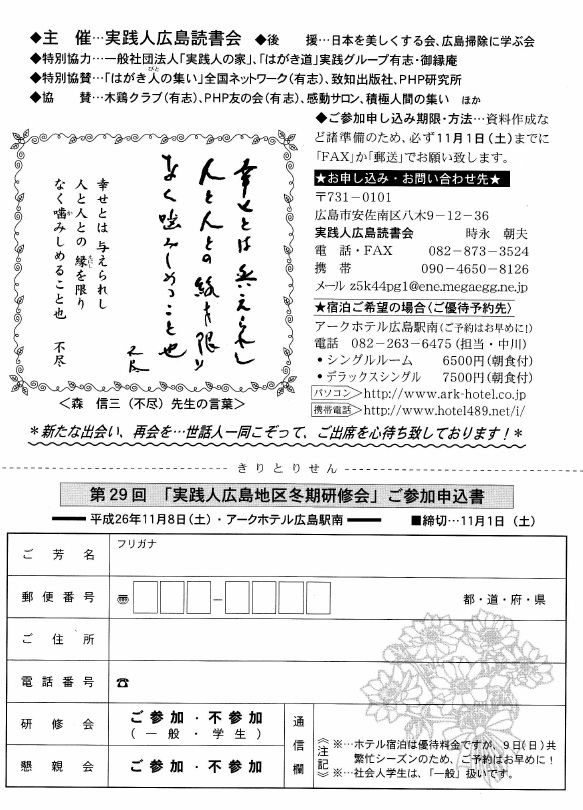 ◆主　催…実践人広島読書会　◆後　援…日本を美しくする会、広島掃除に学ぶ会
◆特別協力…一般社団法人「実践人の家」、「はがき道」実践グループ有志・御縁庵
◆特別協賛…「はがき人の集い」全国ネットワーク(有志)、致知出版社、PHP研究所
◆協　賛…木鶏クラブ(有志)、PHP友の会(有志)、感動サロン、積極人間の集い　ほか
幸せとは 与えられし
人と人との縁を限り
なく噛みしめること也
不尽
幸せとは 与えられし
人と人との 縁を限り
なく噛みしめること也
不尽
＜森　信三（不尽）先生の言葉＞
◆ご参加申し込み期限・方法…資料作成な
ど諸準備のため、必ず11月1日(土)までに
「FAX」か「郵送」でお願い致します。
★お申し込み・お問い合わせ先★
〒731－0101
広島市安佐南区八木9－12－36
実践人広島読書会　時永　朝夫
電　話・FAX　082－873－3524
携　帯　090－4650－8126
メール z5k44pg1@ene.megaegg.ne.jp
★宿泊ご希望の場合〈ご優待予約先〉
アークホテル広島駅南(ご予約はお早めに!)
電話　082－263－6475 (担当・中川)
●シングルルーム　6500円(朝食付)
●デラックスシングル　7500円(朝食付)
パソコン＞http://www.ark-hotel.co.jp
携帯電話＞http://www.hotel489.net/i/
＊新たな出会い、再会を…世話人一同こぞって、ご出席を心待ち致しております！＊
きりとりせん
第29回　「実践人広島地区冬期研修会」ご参加申込書
平成26年11月8日(土)・アークホテル広島駅南　■締切…11月1日（土）
ご芳名　フリガナ
郵便番号　〠　－　都・道・府・県
ご住所
電話番号　☎
研修会　ご参加・不参加
（一般・学生）
懇親会　ご参加・不参加
通信欄
《注記》
※…ホテル宿泊は優待料金ですが、9日(日)共
繁忙シーズンのため、ご予約はお早めに！
※…社会人学生は、「一般」扱いです。